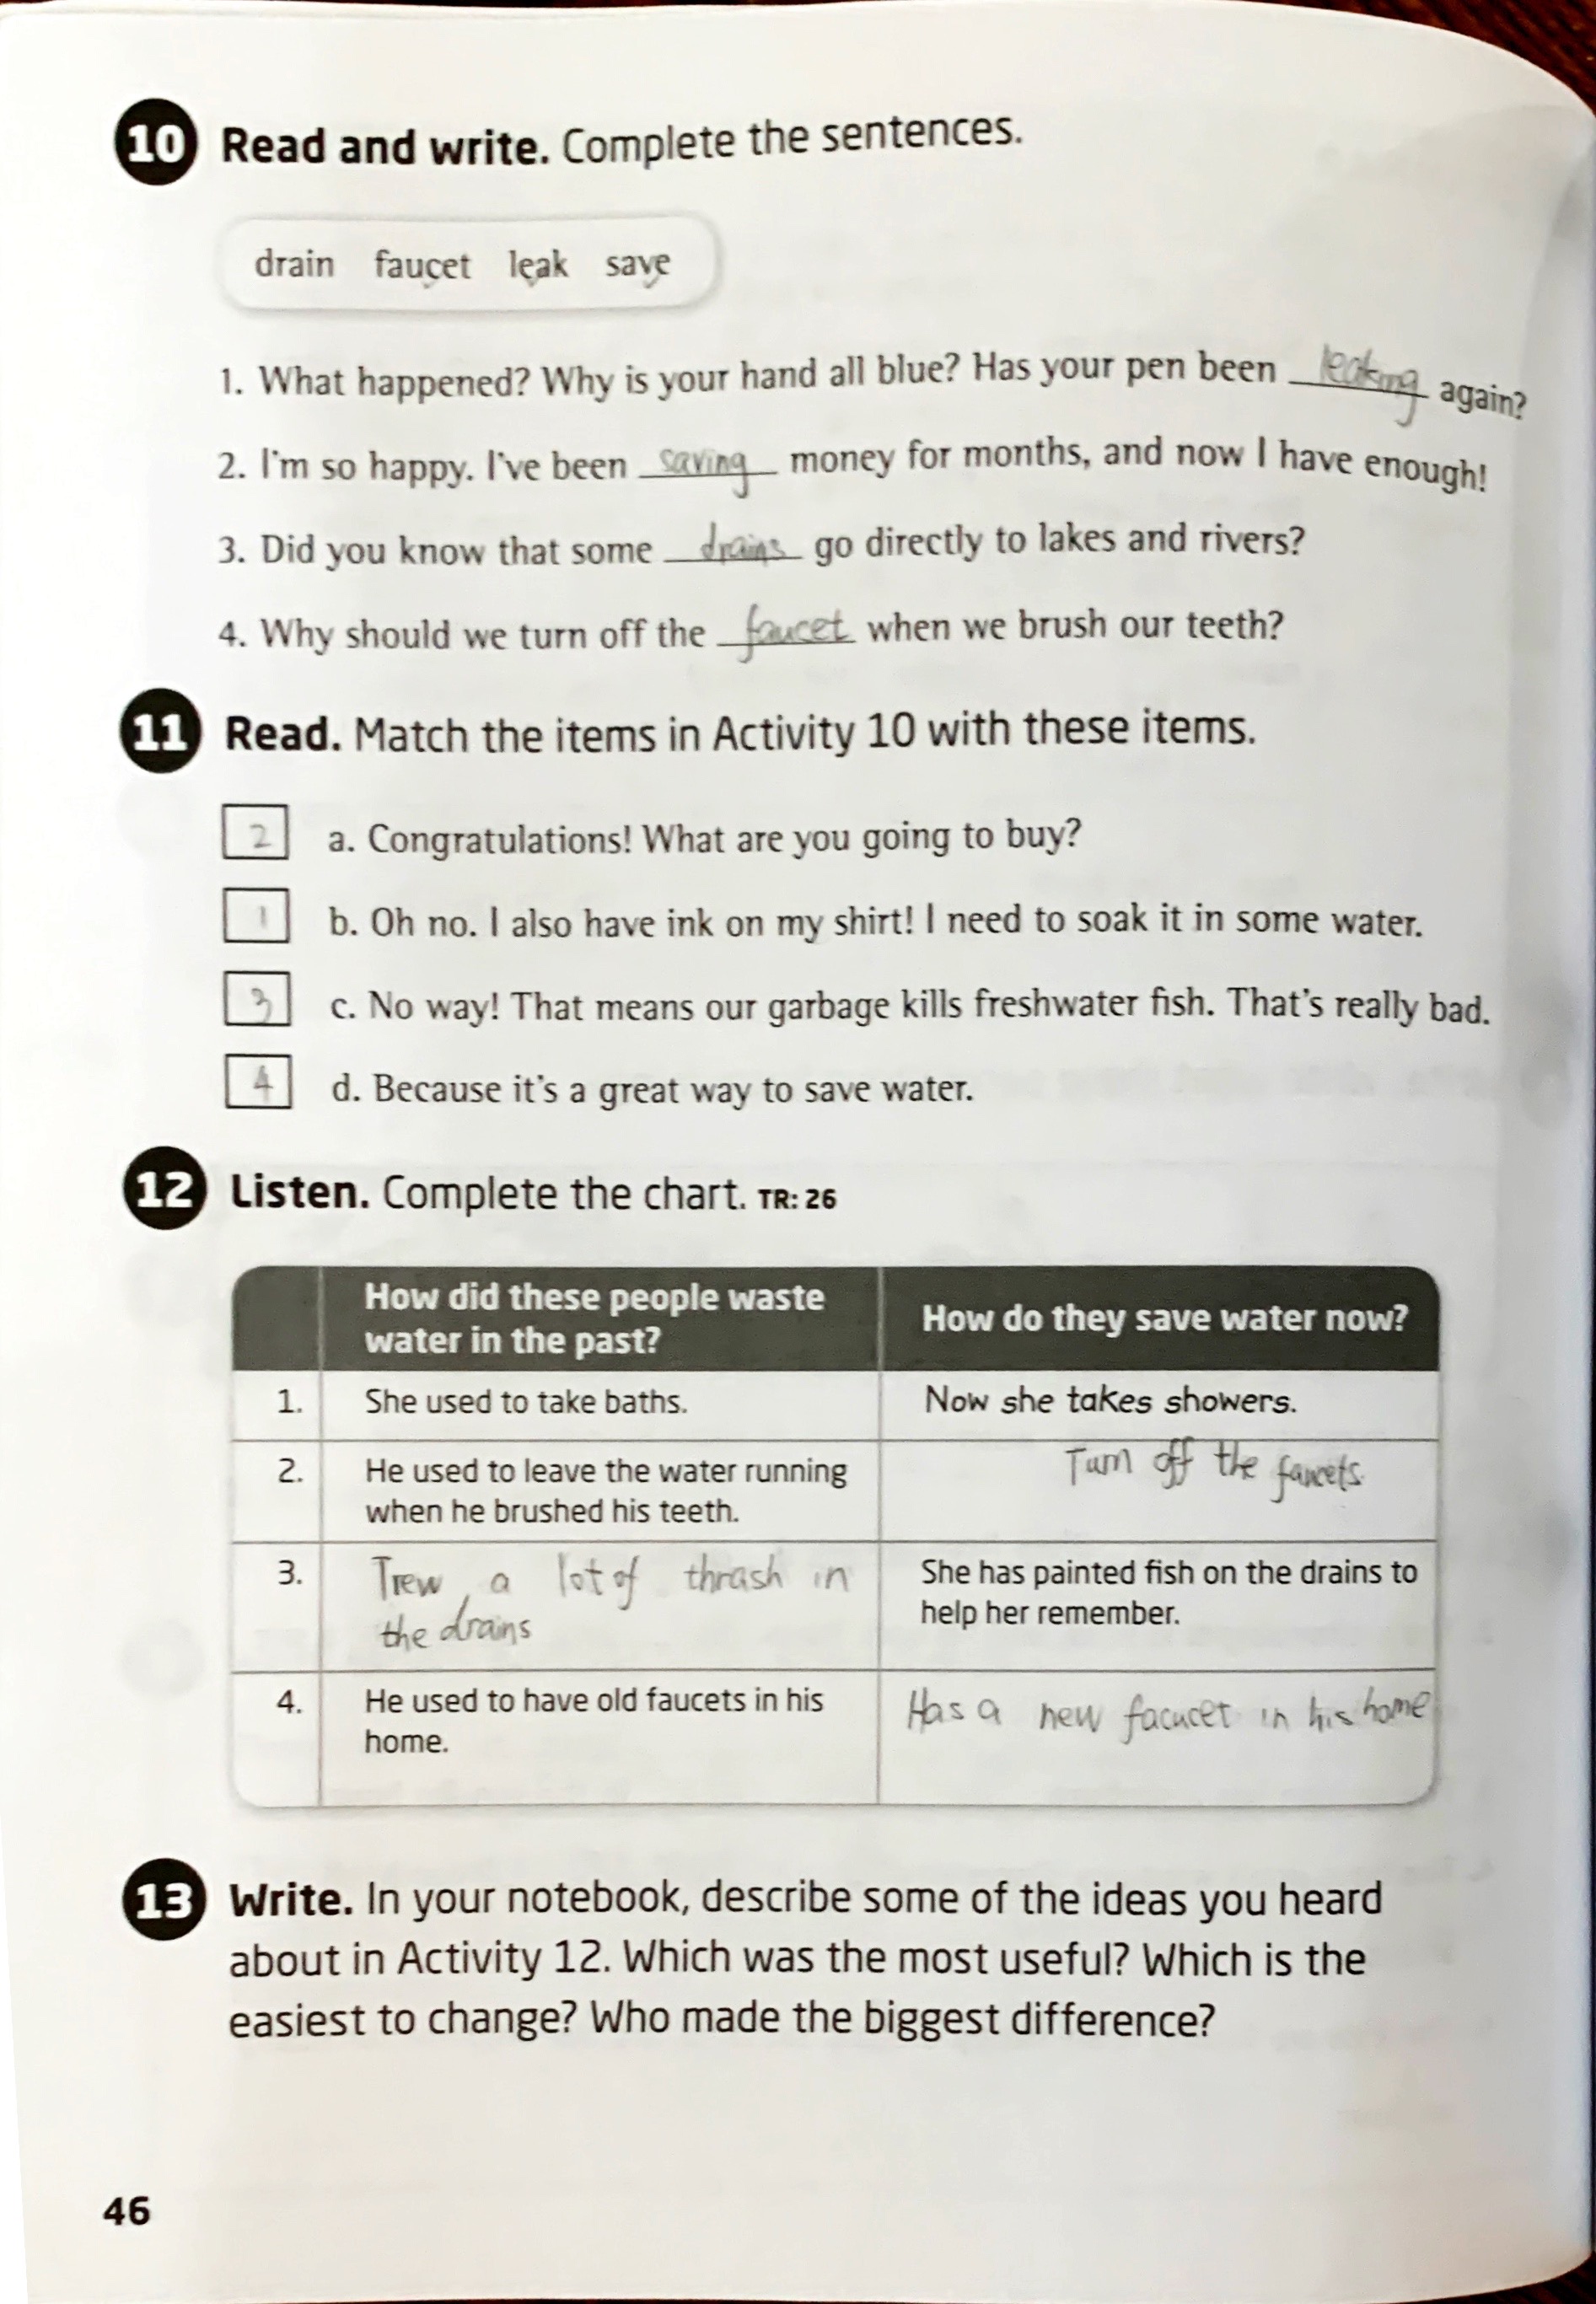 10 Read and write. Complete the sentences.
drain faucet leak save
1. What happened? Why is your hand all blue? Has your pen been leaking again?
2. I'm so happy. I've been saving money for months, and now I have enough!
3. Did you know that some drains go directly to lakes and rivers?
4. Why should we turn off the faucet when we brush our teeth?
11 Read. Match the items in Activity 10 with these items.
2 a. Congratulations! What are you going to buy?
1 b. Oh no. I also have ink on my shirt! I need to soak it in some water.
3 c. No way! That means our garbage kills freshwater fish. That's really bad.
4 d. Because it's a great way to save water.
12 Listen. Complete the chart. TR: 26
How did these people waste
water in the past?
How do they save water now?
1. She used to take baths.
Now she takes showers.
2. He used to leave the water running
when he brushed his teeth.
Turn off the faucets.
3. Trew a lot of thrash in
the drains
She has painted fish on the drains to
help her remember.
4. He used to have old faucets in his
home.
Has a new facucet in his home
13 Write. In your notebook, describe some of the ideas you heard
about in Activity 12. Which was the most useful? Which is the
easiest to change? Who made the biggest difference?
46